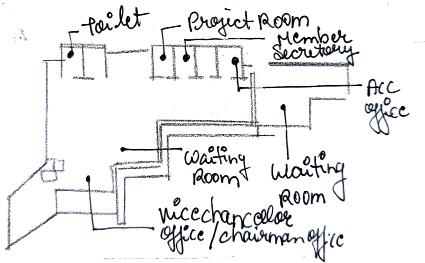 Toilet
Project Room
Member
Secretary
Acc
office
Waiting
Room
Waiting
Room
vicechancelor
office/chairman office